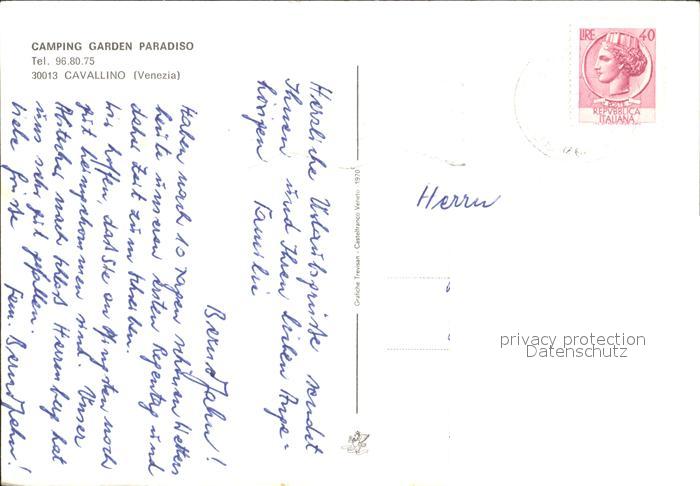 CAMPING GARDEN PARADISO
Tel. 96.80.75
30013 CAVALLINO (Venezia)
Herzliche Urlaubsgrüße sendet
Ihnen und Ihren lieben Ange-
hörigen Familie
Bernd Jahn!
Haben nach 10 Tagen schönen Wetters
heute unseren ersten Regentag und
daher Zeit zum Schreiben.
Wir hoffen, daß Sie an Pfingsten noch
gut heimgekommen sind. Unser
Abstecher nach Schloß Herrenberg hat
uns sehr gut gefallen.
Viele Grüße Fam Bernd Jahn!
Grafiche Trevisan - Castelfranco Veneto - 1970
LIRE 40
REPVBBLICA
ITALIANA
Herrn
privacy protection
Datenschutz